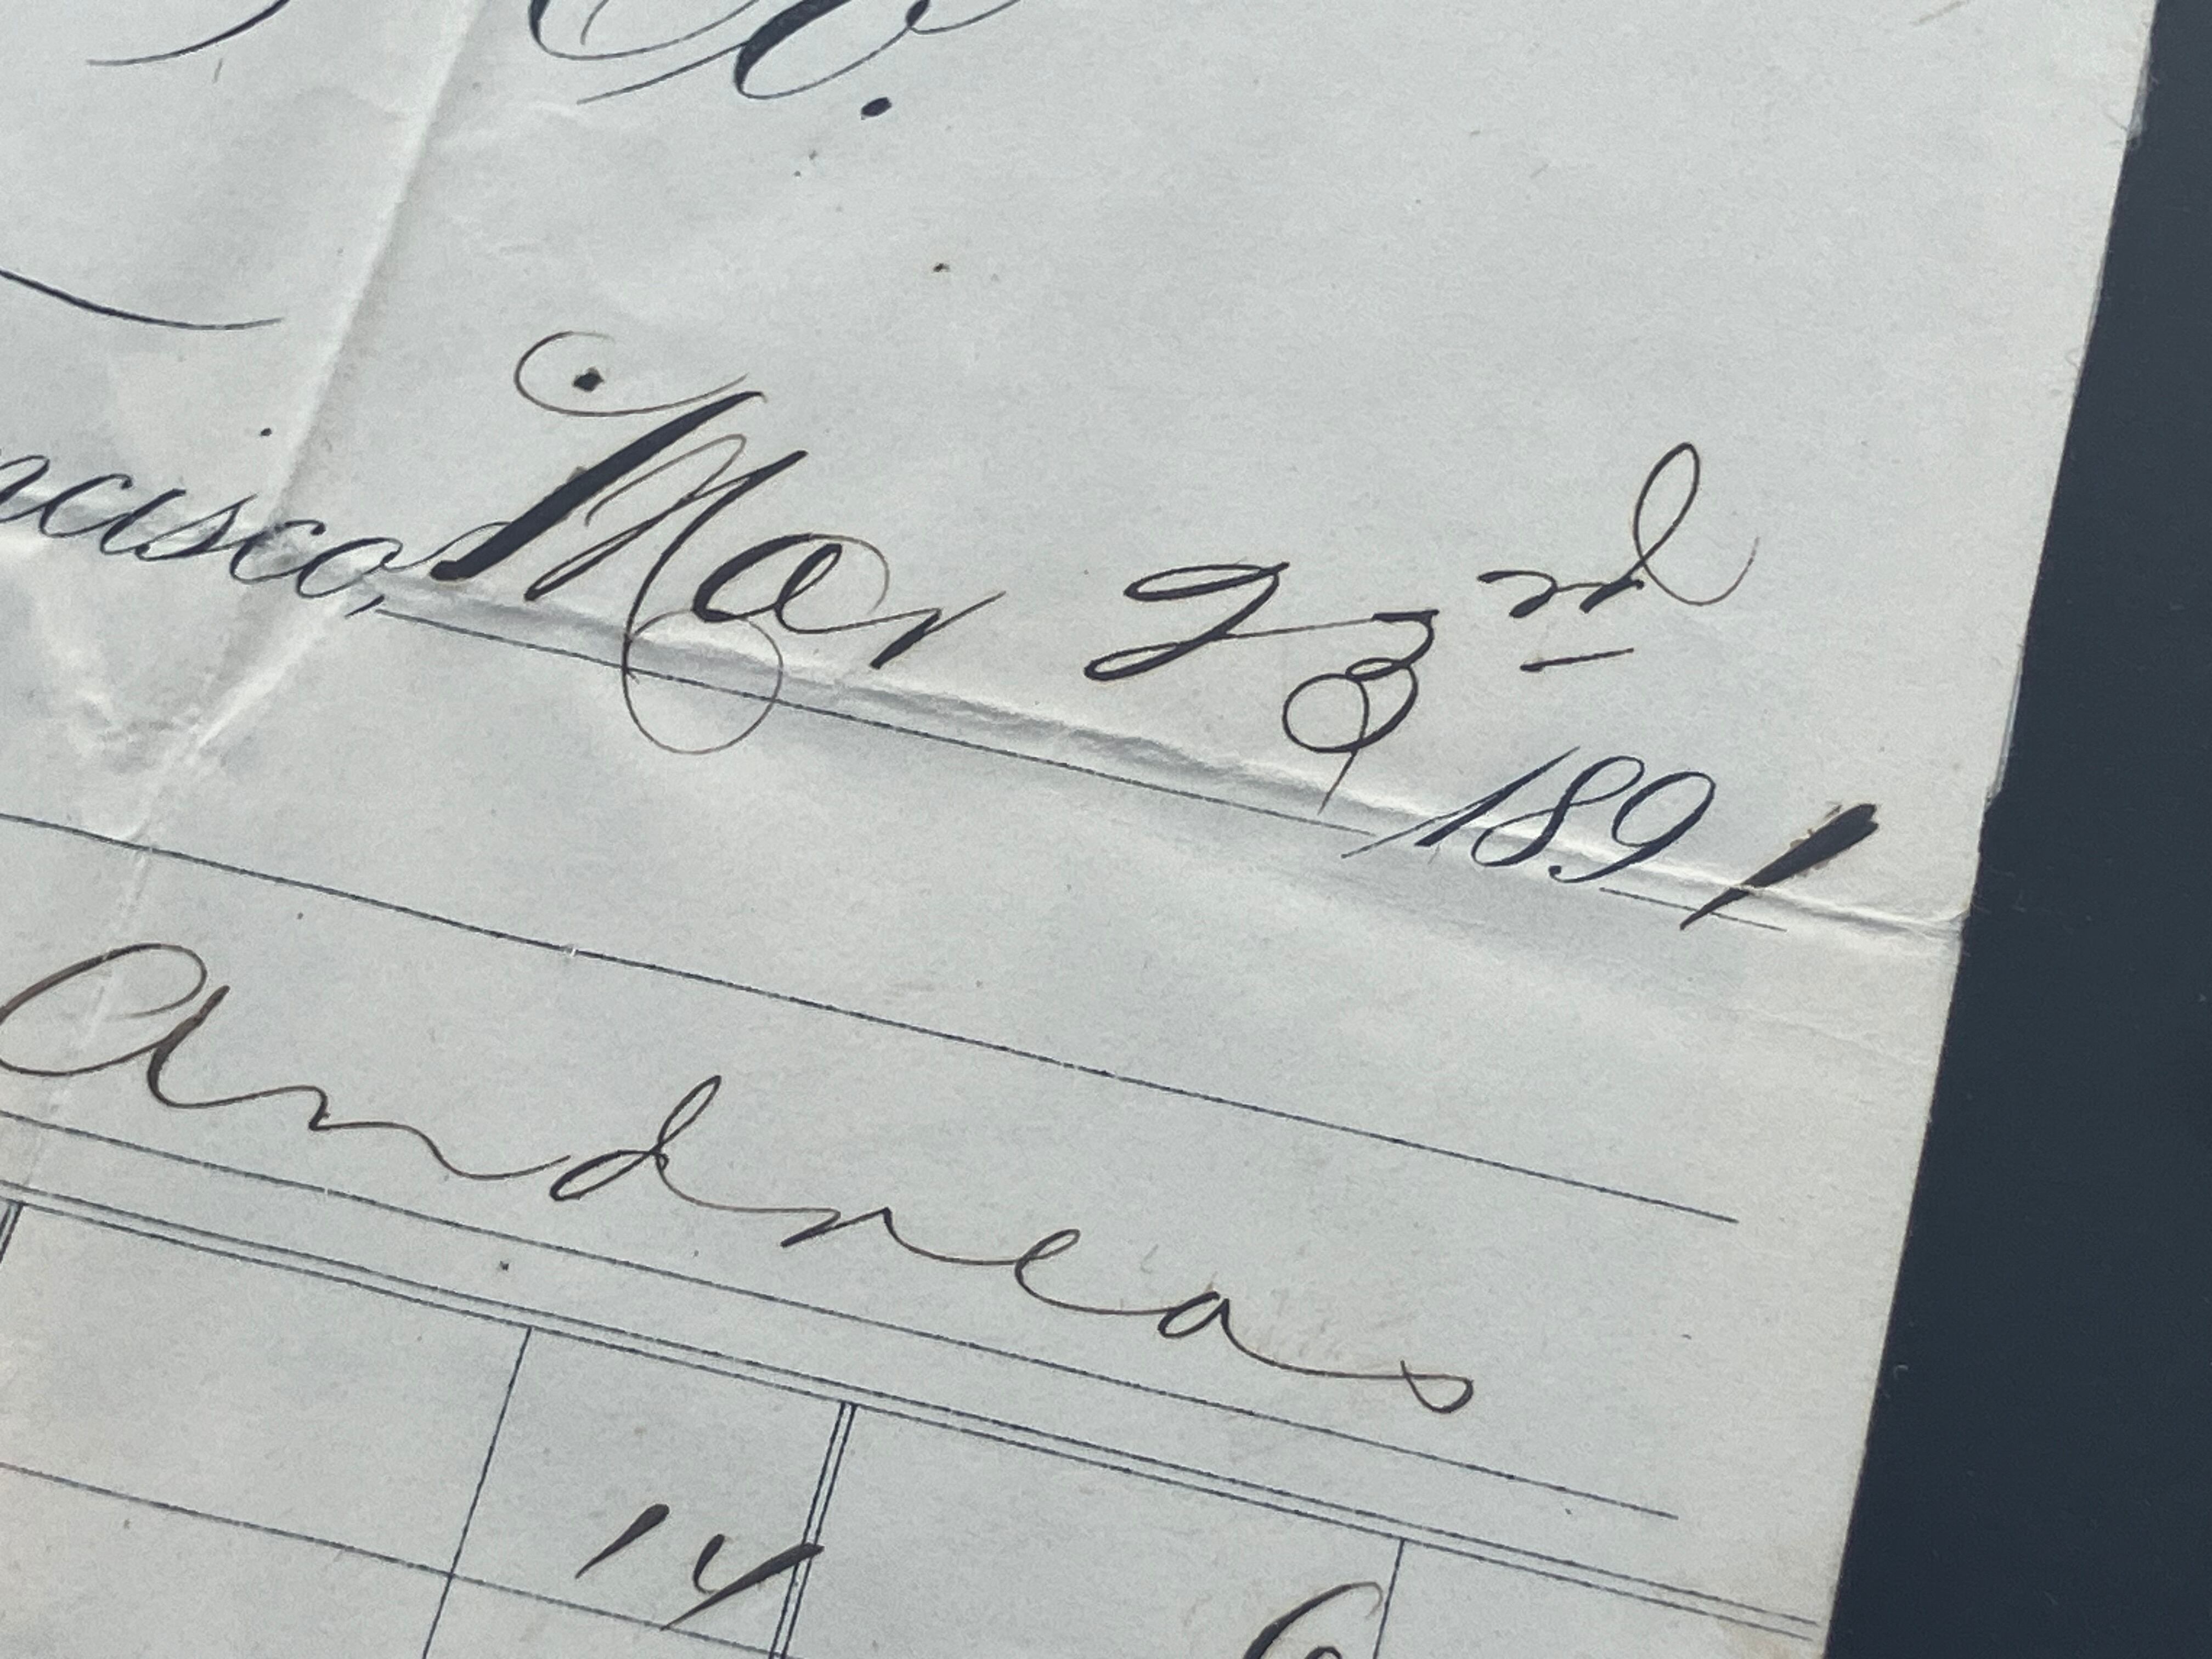 Co.
ncisco, Mar 23rd 1891
Andreas
14